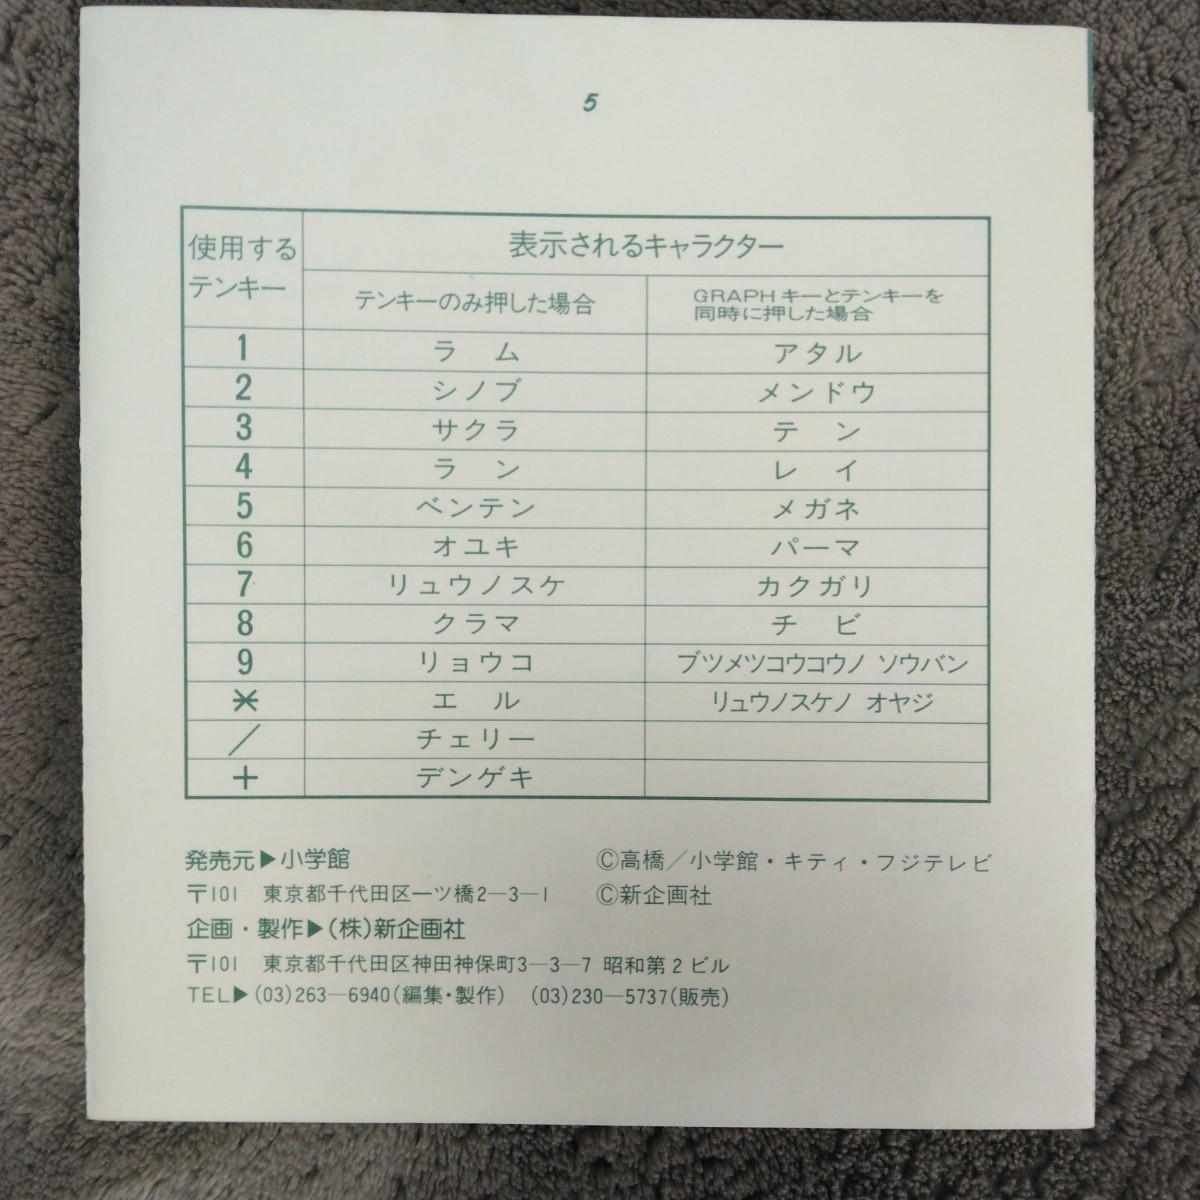 5
使用する
テンキー
表示されるキャラクター
テンキーのみ押した場合
GRAPHキーとテンキーを
同時に押した場合
1 ラ ム アタル
2 シノブ メンドウ
3 サクラ テ ン
4 ラ ン レ イ
5 ベンテン メガネ
6 オユキ パーマ
7 リュウノスケ カクガリ
8 クラマ チ ビ
9 リョウコ ブツメツコウコウノ ソウバン
* エ ル リュウノスケノ オヤジ
/ チェリー
+ デンゲキ
発売元▶小学館 ©高橋/小学館・キティ・フジテレビ
〒101 東京都千代田区一ツ橋2-3-1 ©新企画社
企画・製作▶(株)新企画社
〒101 東京都千代田区神田神保町3-3-7 昭和第2ビル
TEL▶(03)263-6940(編集・製作) (03)230-5737(販売)